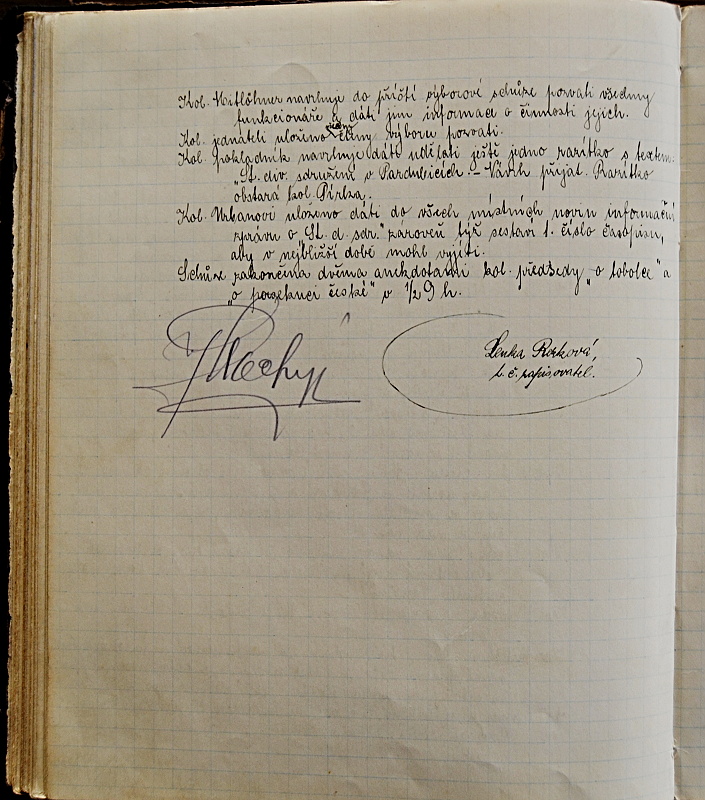 Kol. Mitlöhner navrhuje do příští výborové schůze pozvati všechny
funkcionáře a dáti jim informace o činnosti jejich.
Kol. jednateli uloženo všechny členy výboru pozvati.
Kol. pokladník navrhuje dáti udělati ještě jedno razítko s textem:
„St. div. sdružení v Pardubicích." – Návrh přijat. Razítko
obstará kol. Pírka.
Kol. Urbanovi uloženo dáti do všech místních novin informační
zprávu o „St. d. sdr." zároveň týž sestaví 1. číslo časopisu,
aby v nejbližší době mohl vyjíti.
Schůze zakončena dvěma anekdotami kol. předsedy „o tobolce" a
„o české" v ½ 9 h.
Lenka
t. č. zapisovatel.